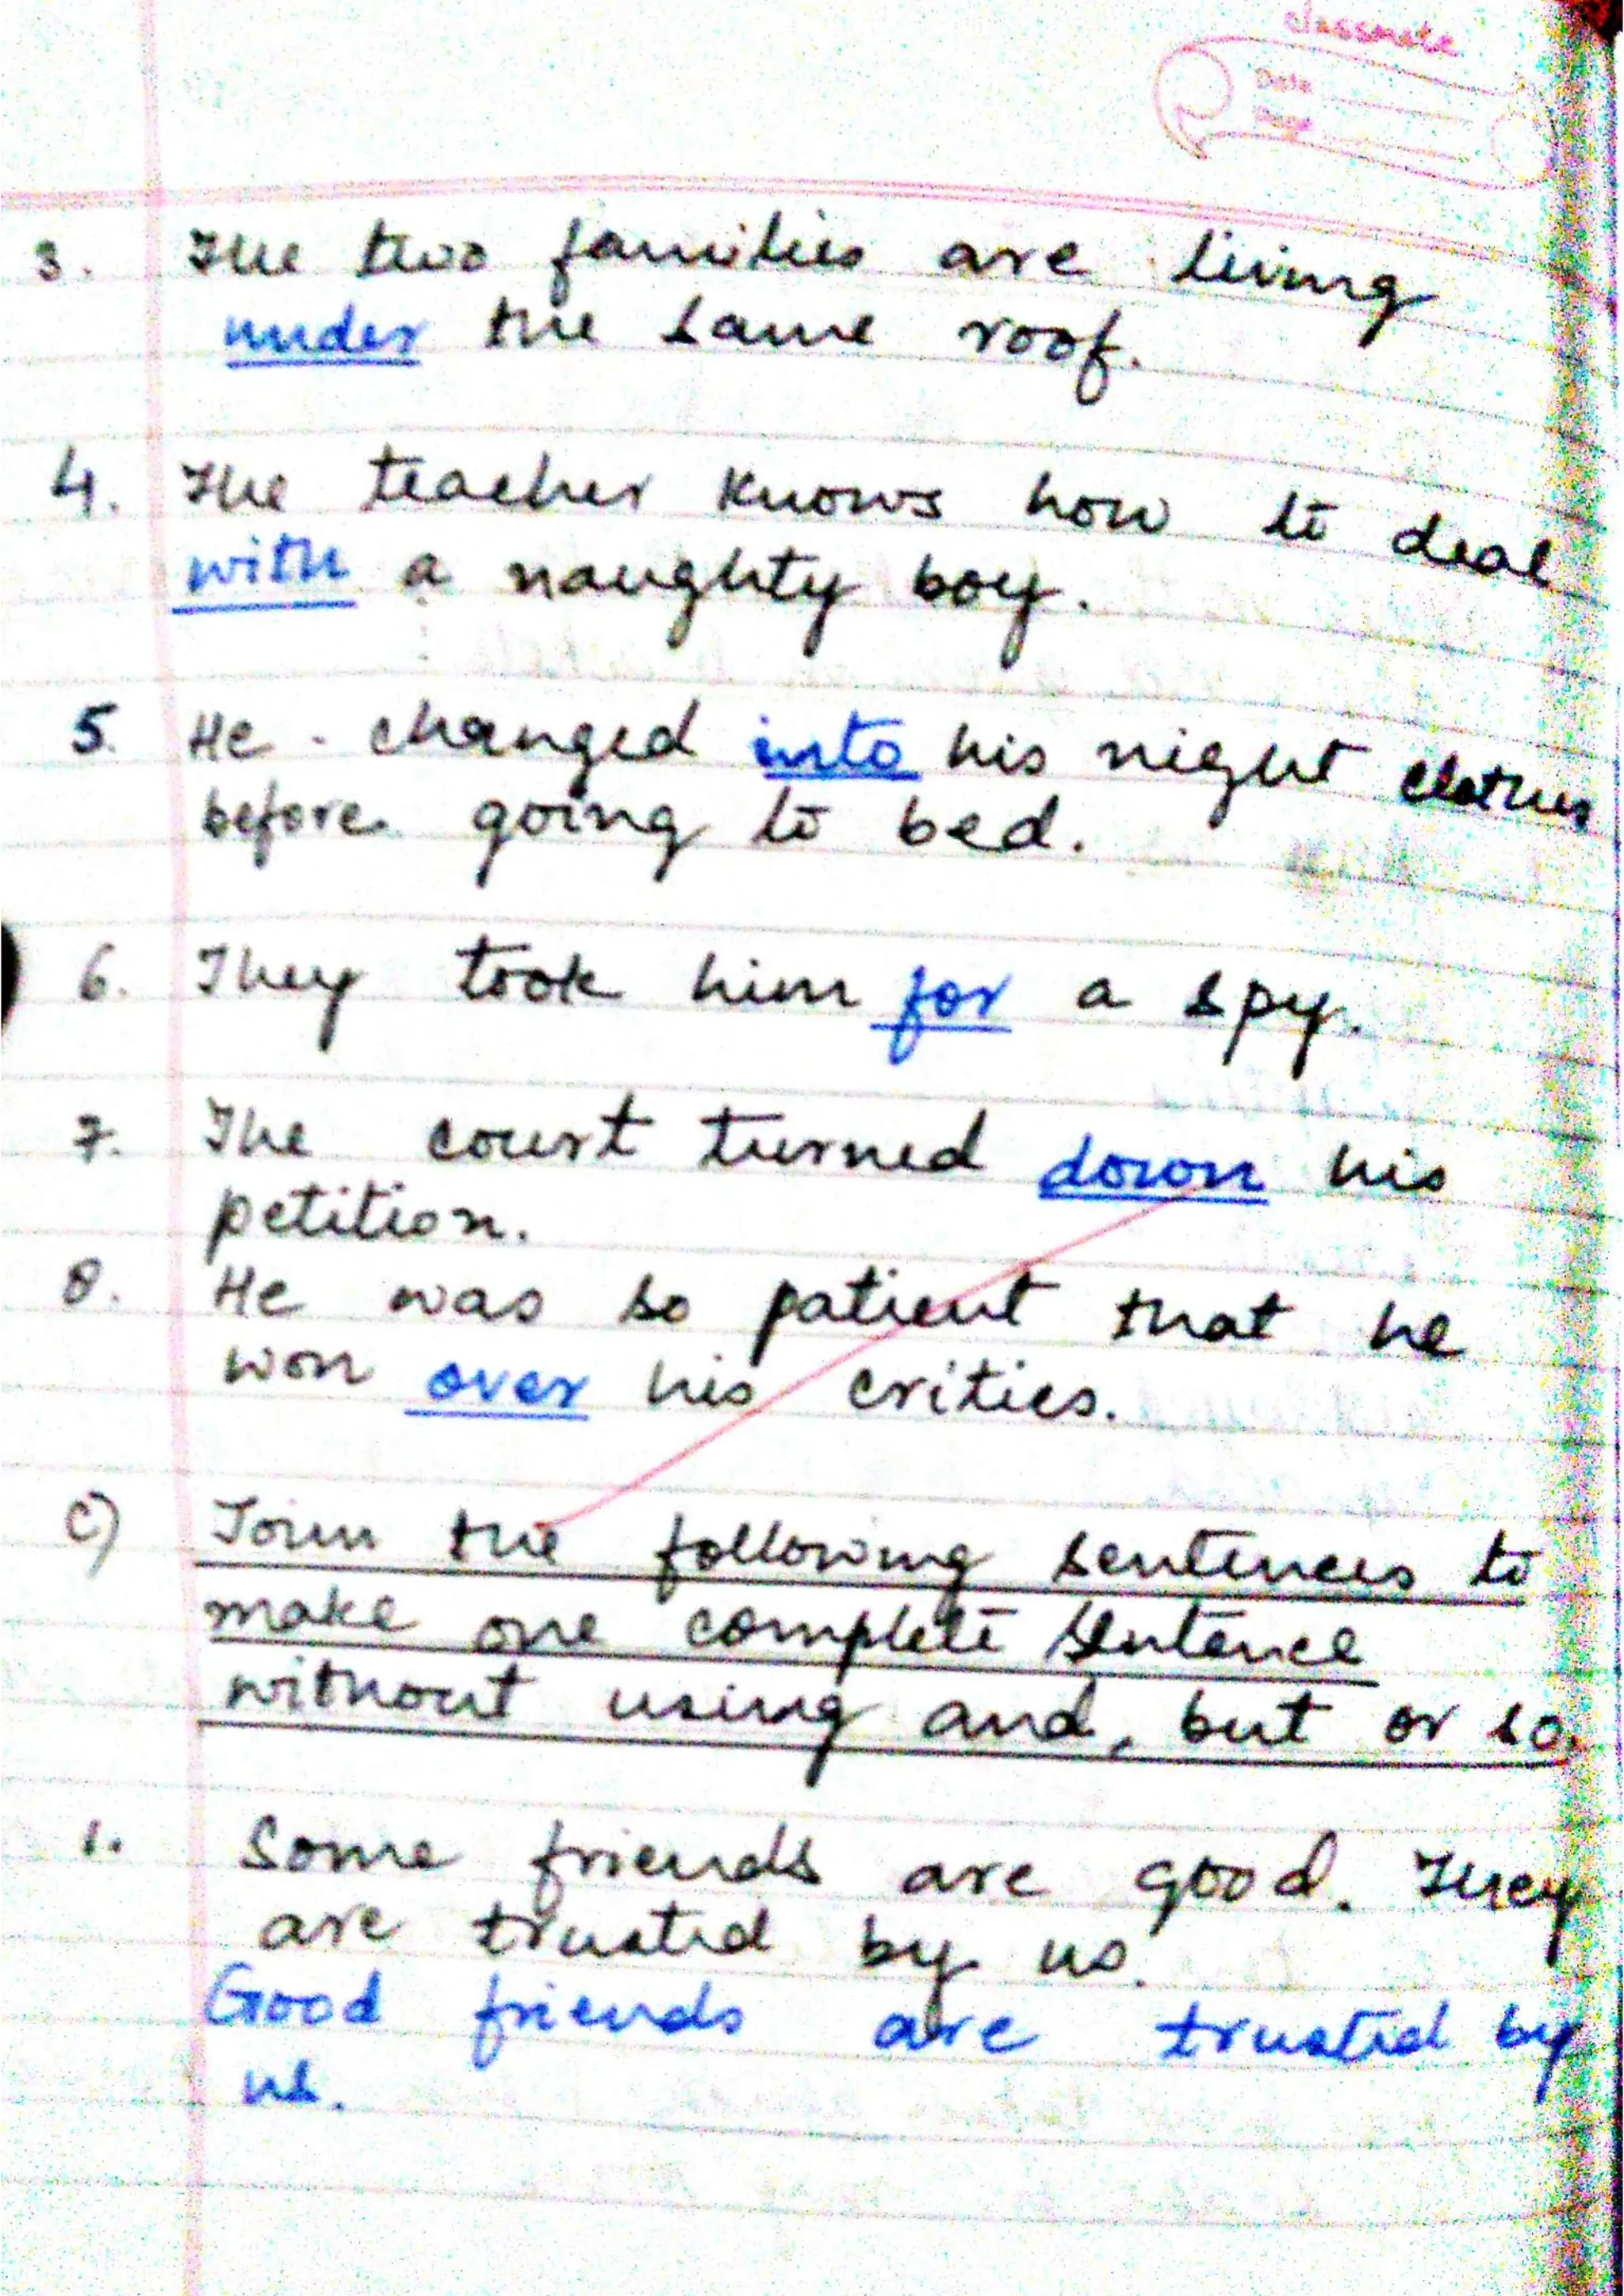 classmate
Date
Page
3. The two families are living
under the same roof.
4. The teacher knows how to deal
with a naughty boy.
5. He changed into his night clothes
before going to bed.
6. They took him for a spy.
7. The court turned down his
petition.
8. He was so patient that he
won over his critics.
c) Join the following sentences to
make one complete sentence
without using and, but or so.
1. Some friends are good. They
are trusted by us.
Good friends are trusted by
us.